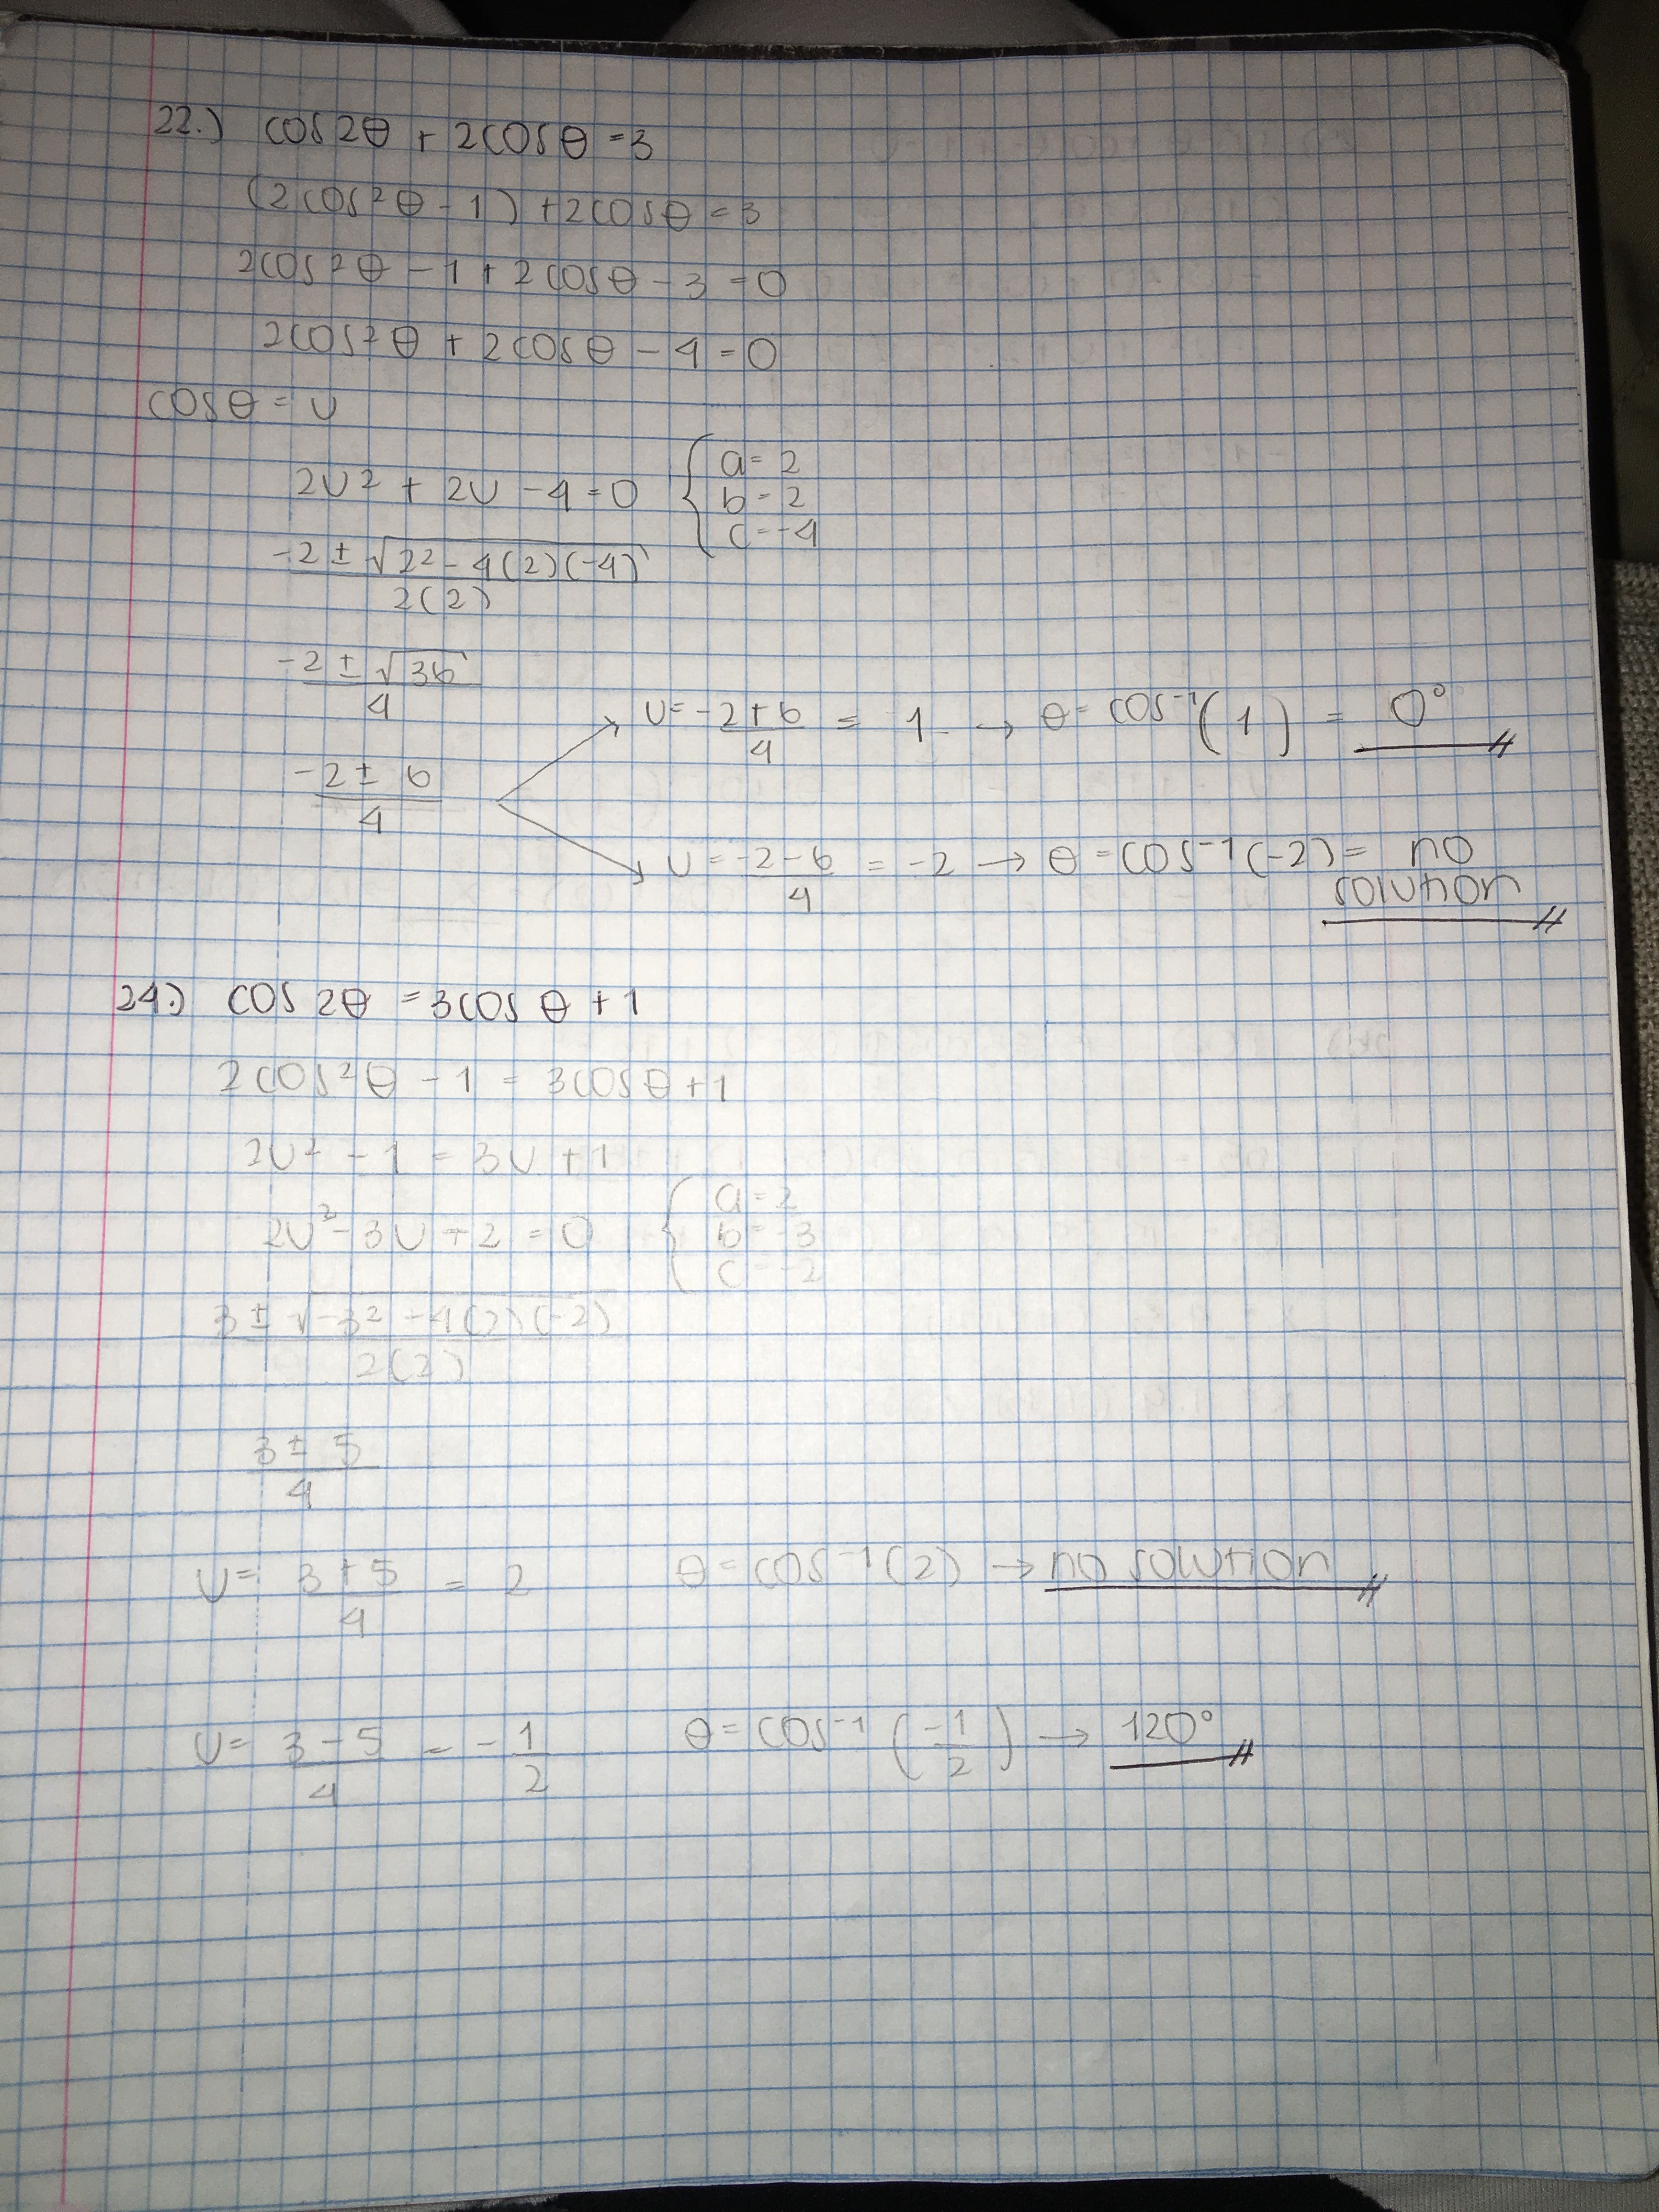 22.) cos 2θ + 2cos θ = 3
(2cos²θ - 1) + 2cosθ = 3
2cos²θ - 1 + 2cosθ - 3 = 0
2cos²θ + 2cosθ - 4 = 0
cosθ = U
2U² + 2U - 4 = 0 { a = 2
b = 2
c = -4
-2 ± √2² - 4(2)(-4)
2(2)
-2 ± √36
4
U = -2+6 / 4 = 1 → θ = cos⁻¹(1) = 0°
-2 ± 6
4
U = -2-6 / 4 = -2 → θ = cos⁻¹(-2) = no
solution
24.) cos 2θ = 3cos θ + 1
2cos²θ - 1 = 3cosθ + 1
2U² - 1 = 3U + 1
2U² - 3U - 2 = 0 { a = 2
b = -3
c = -2
3 ± √-3² - 4(2)(-2)
2(2)
3 ± 5
4
U = 3+5 / 4 = 2 θ = cos⁻¹(2) → no solution
U = 3-5 / 4 = -1/2 θ = cos⁻¹(-1/2) → 120°